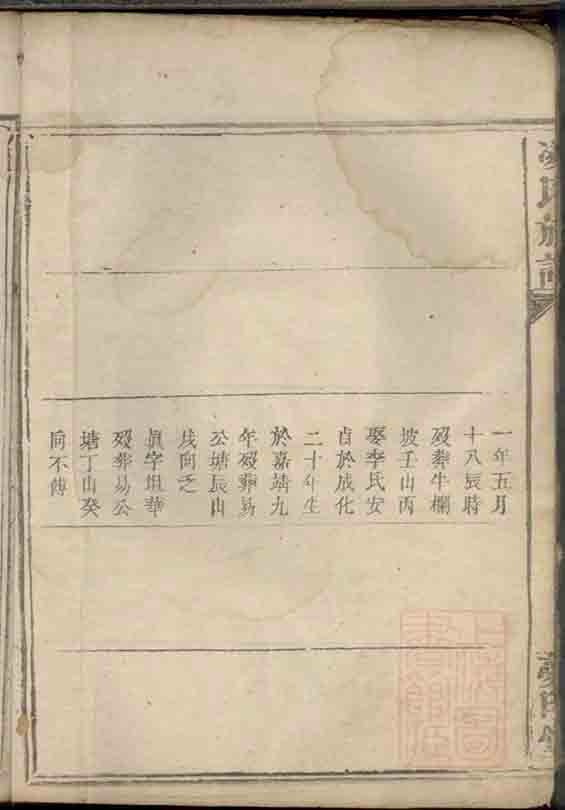 氏族譜
一年五月
十八辰時
歿葬牛欄
坡壬山丙
娶李氏安
貞於成化
二十年生
於嘉靖九
年歿葬易
公塘辰山
戌向乏
眞字坦華
歿葬易公
塘丁山癸
向不傳
上海圖
書館藏